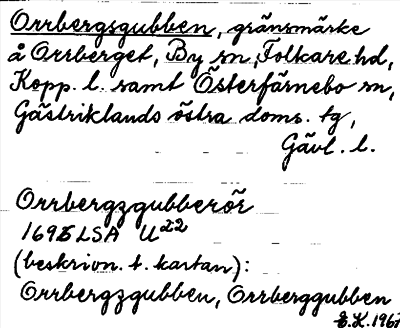 Orrbergsgubben, gränsmärke
å Orrberget, By sn, Folkare hd,
Kopp. l. samt Österfärnebo sn,
Gästriklands östra doms. tg,
Gävl. l.
Orrbergzgubberör
1695 LSA U22
(beskrivn. t. kartan):
Orrbergzgubben, Orrberggubben
E.K. 1967